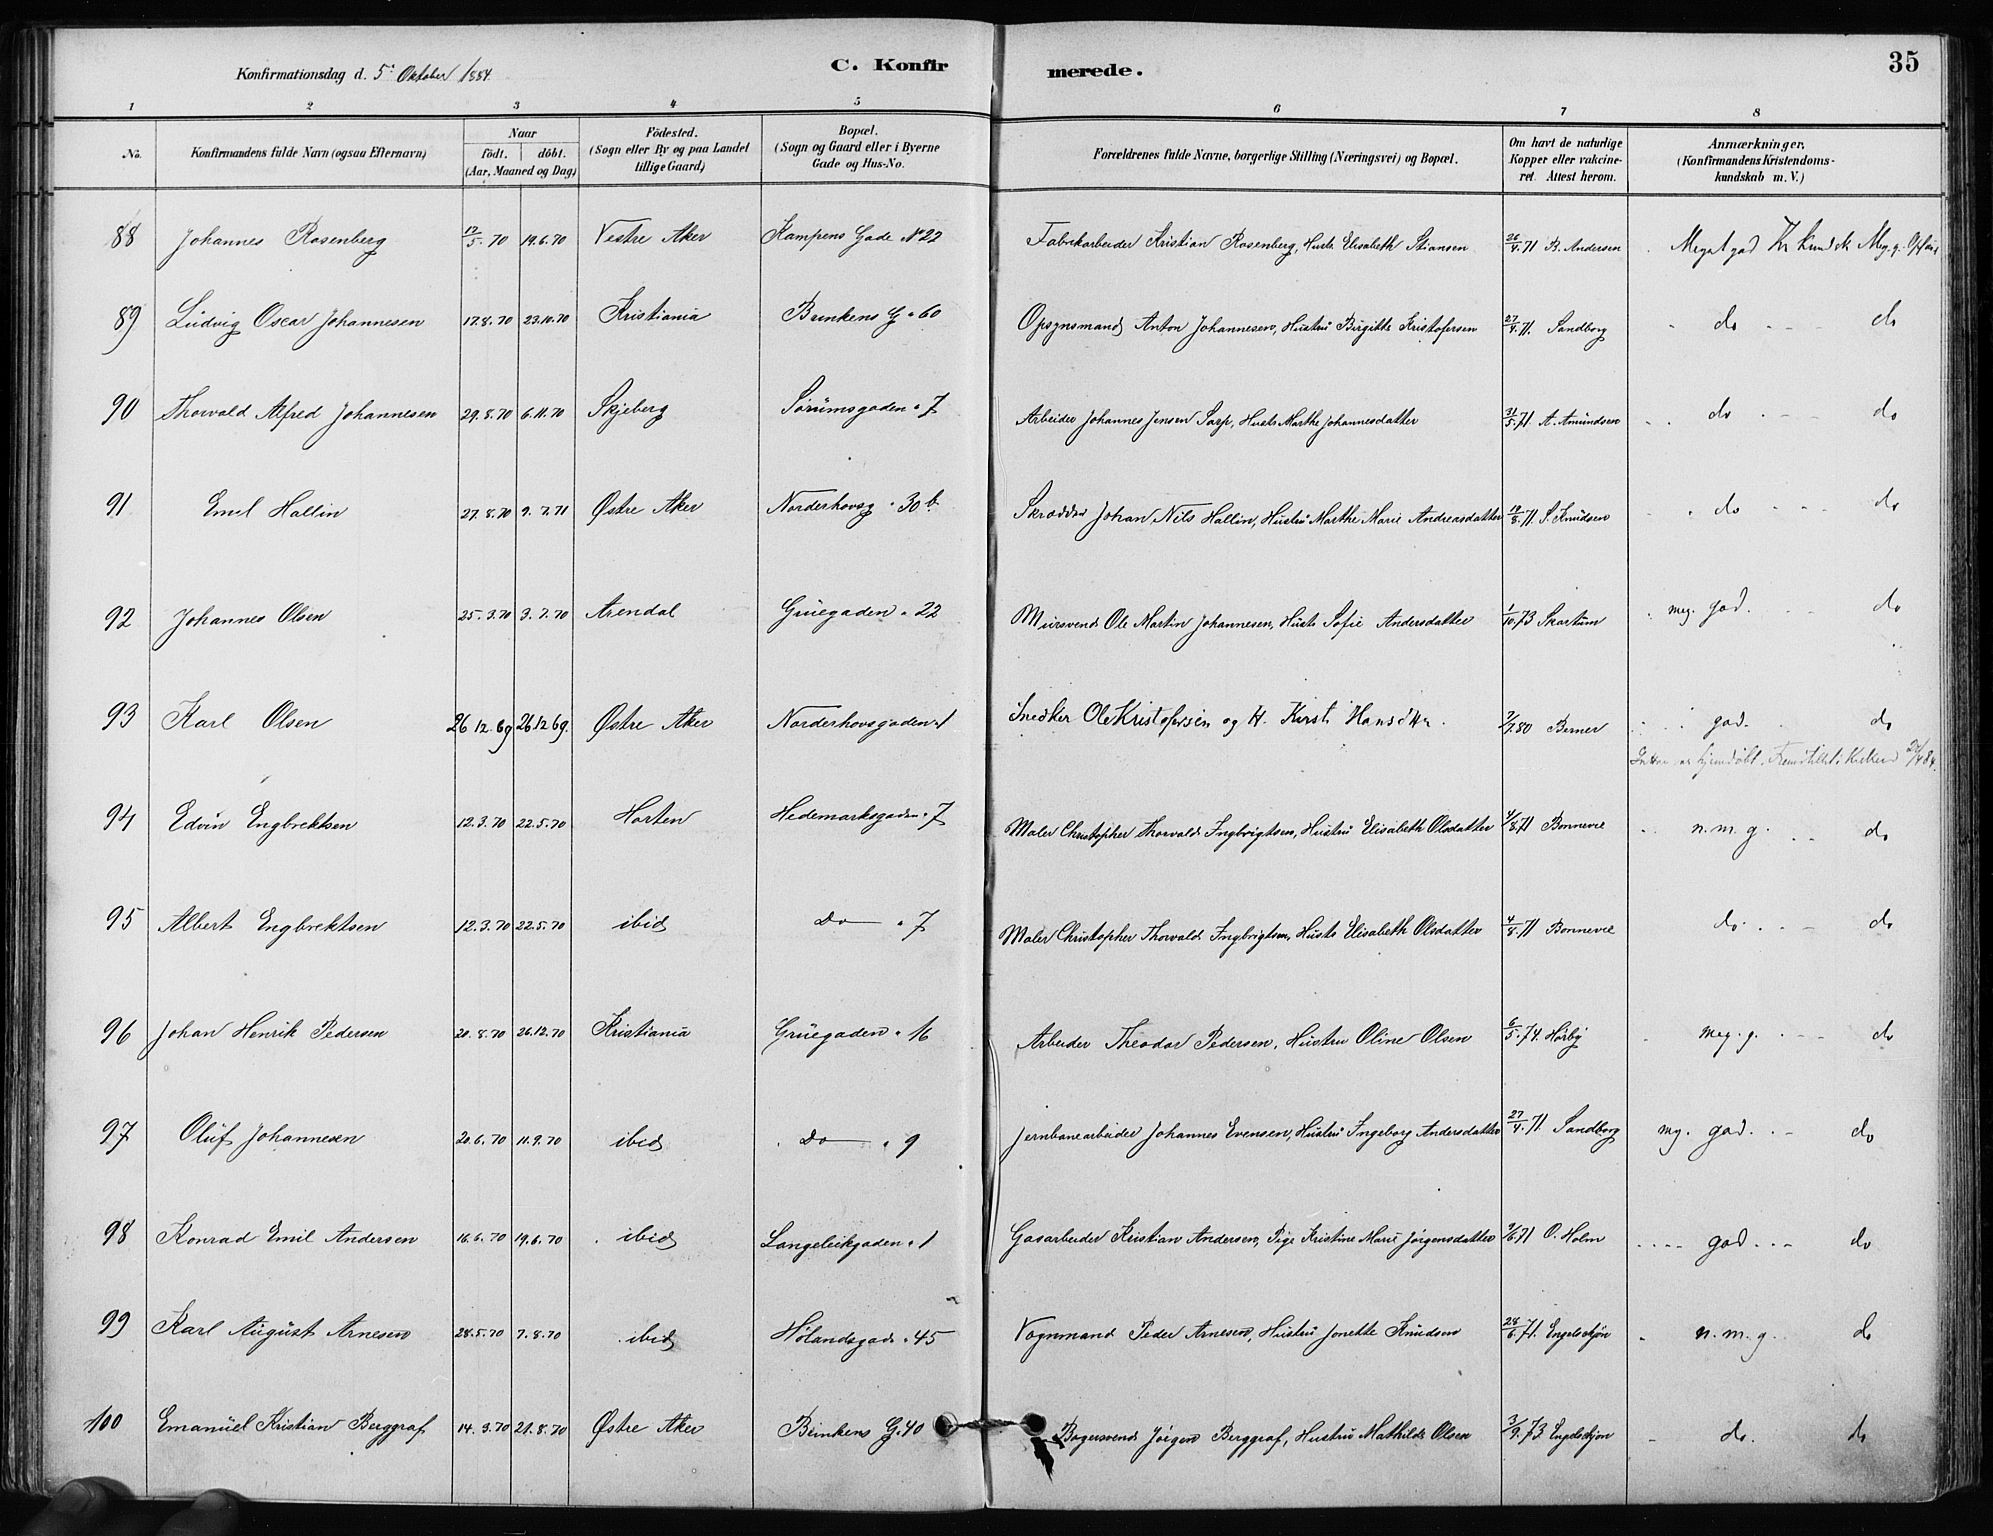 Konfirmationsdag d. 5' Oktober 1884. C. Konfirmerede. 35
1 2 3 4 5 6 7 8
No. Konfirmandens fulde Navn (ogsaa Efternavn) Naar födt. döbt. (Aar, Maaned og Dag) Födested. (Sogn eller By og paa Landet tillige Gaard) Bopæl. (Sogn og Gaard eller i Byerne Gade og Hus-No. Forældrenes fulde Navne, borgerlige Stilling (Næringsvei) og Bopæl. Om havt de naturlige Kopper eller vakcineret. Attest herom. Anmærkninger, (Konfirmandens Kristendomskundskab m. V.)
88 Johannes Rosenberg 17/5. 70 19.6.70 Vestre Aker Kampens Gade No 22 Fabrikarbeider Kristian Rosenberg, Hustr. Elisabeth Stiansen 26/4.71 B. Andersen Meget god Kr. kundsk Meg. g.
89 Ludvig Oscar Johannesen 17.8.70 23.10.70 Kristiania Brinkens G " 60 Opsynsmand Anton Johannesen, Hustru Birgitte Kristofersen 27/4.71. Sandborg do - - - do
90 Thorvald Alfred Johannesen 29.8.70 6.11.70 Skjeberg Sørumsgaden " 7 Arbeider Johannes Jensen Sarp, Hustr Marthe Johannesdatter 31/5.71 A. Amundsen do - - - do
91 Emil Hallin 27.8.70 9.7.71 Østre Aker Norderhovsg " 30 b. Skrædder Johan Nils Hallin, Hustru Marthe Marie Andreasdatter 19/8.71 S. Knudsen do - - - do
92 Johannes Olsen 25.3.70 3.7.70 Arendal Gruegaden " 22 Mursvend Ole Martin Johannesen, Hustr Sofie Andersdatter 1/10.73 Skartum meg. god. - - do
93 Karl Olsen 26 12.69 26 12 69. Østre Aker Norderhovsgaden " 1 Snedker Ole Kristofersen og H. Kirsti Hansdtter. 7/7.80 Berner god. do
er hjemdøbt. Fremstillet i Kirken
94 Edvin Engbrektsen 12.3.70 22.5.70 Horten Hedemarksgaden " 7 Maler Christopher Thorvald Ingbrigtsen, Hustru Elisabeth Olsdatter 4/8.71 Bonnevie n. m. g. - - do
95 Albert Engbrektsen 12.3.70 22.5.70 ibid Do " 7 Maler Christopher Thorvald Ingbrigtsen, Hustr Elisabeth Olsdatter 4/8.71 Bonnevie do - - - do
96 Johan Henrik Pedersen 20.8.70 26.12.70 Kristiania Gruegaden " 16 Arbeider Theodor Pedersen, Hustru Oline Olsen 6/5.74. Hørby meg. g. - - - do
97 Oluf Johannesen 20.6.70 11.9.70 ibid Do " 9 Jernbanearbeider Johannes Evensen, Hustru Ingeborg Andersdatter 27/4.71. Sandborg mg. god. - - do
98 Konrad Emil Andersen 16.6.70 19.6.70 ibid Langeleikgaden " 1 Gasarbeider Kristian Andersen, Pige Kristine Marie Jørgensdatter 9/6.71 O. Holm god - - - do
99 Karl August Arnesen 28.5.70 7.8.70 ibid Hølandsgad. " 45 Vognmand Peder Arnesen, Hustru Jonette Knudsen 28/6.71. Engelschjøn n. m. g. do
100 Emanuel Kristian Berggraf 14.3.70 21.8.70 Østre Aker Brinkens G. 40 Bagersvend Jörgen Berggraf, Hustru Mathilde Olsen 3/9.73 Engelschjøn do. do